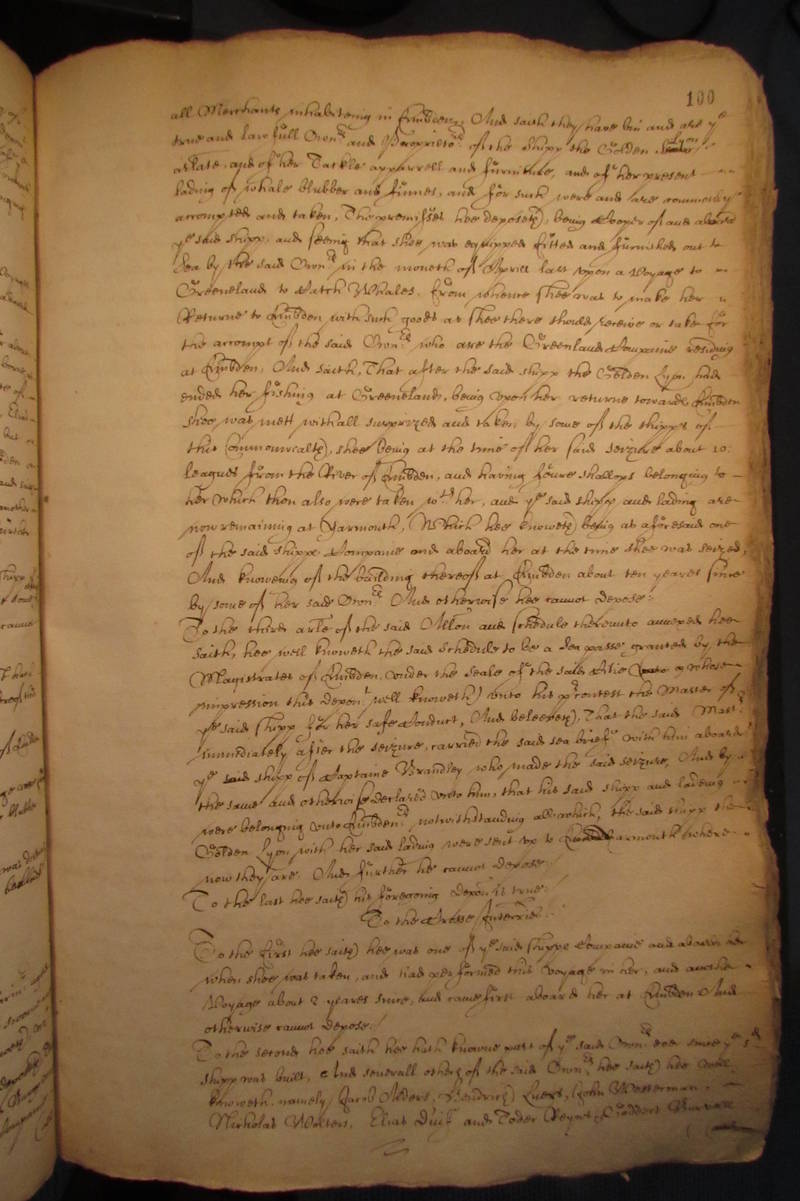 100
all Merchants inhabitenig in Embden, And saith they have bin and are ye
true and lawfull Owners and Proprietors of the shipp the Golden Lyon
arlate, and of her Tackle apparrell and furniture, and of her present
lading of whale blubber and finnes, and for such were and are commonly
accompted and taken, The premisses hee deposeth, being Cooper of and aboard
ye said shipp, and seeing that shee was equipped fitted and furnished out to
Sea by the said Owners in the moneth of Aprill last upon a Voyage to
Greeneland to Catch Whales. from whence shee was to make her
Returne to Embden with such goods as shee there should receive or take for
the accompt of the said Owners who are the Greenland Companie residing
at Embden, And saith, That after the said shipp the Golden Lyon had
ended her fishing at Greeneland, being upon her returne towards Embden
shee was mett withall surprized and taken by some of the shipps of
this Commonwealth, shee being at the time of her said seizure about 10
leagues from the River of Embden, and having foure shallops belonging to
her which then also were taken wth her, and ye said shipp and lading are
now remaining at Yarmouth, Which hee knoweth being as aforesaid one
of the said shipps Companie and aboard her at the time shee was seized,
And knoweing of the building thereof at Embden about ten yeares since
by some of her said Owners And otherwise hee cannot depose.
To the third arle of the said Allon and schedule thereunto annexed hee
saith, hee well knoweth the said schedule to be a sea passe granted by the
Magistrates of Embden under the seale of the said Citie whose
impression this deponent well knoweth) unto his precontest the Master of
ye said shipp for her safe Conduct, And beleeveth, That the said Master
immediately after the seizure, carried the said sea brief with him aboard
ye said shipp of Captaine Brandley who made the said seizure, And by
the same and otherwise declared unto him, that his said shipp and lading
were belonging unto Embdeners, notwithstanding all which, the said shipp the
Golden Lyon with her said lading were sent up to Yarmouth where
now they are. And further he cannot depose./
To the last hee saith his foregoing depon is true./
To the Crosse Interries.
To the first hee saith hee was one of ye said shipps Companie and aboard her
when shee was taken, and had performed this voyage in her, and another
Voyage about 2 yeares since, and came first aboard her at Embden And
otherwise cannot depose./
To the second hee saith hee hath knowne part of ye said Owners ever since ye sd
shipp was built, And severall others of the said Owners hee saith hee well
knoweth, namely Jacob Alders, Hendrick Luers, John Westerman,
Nicholas Wolters, Elias and